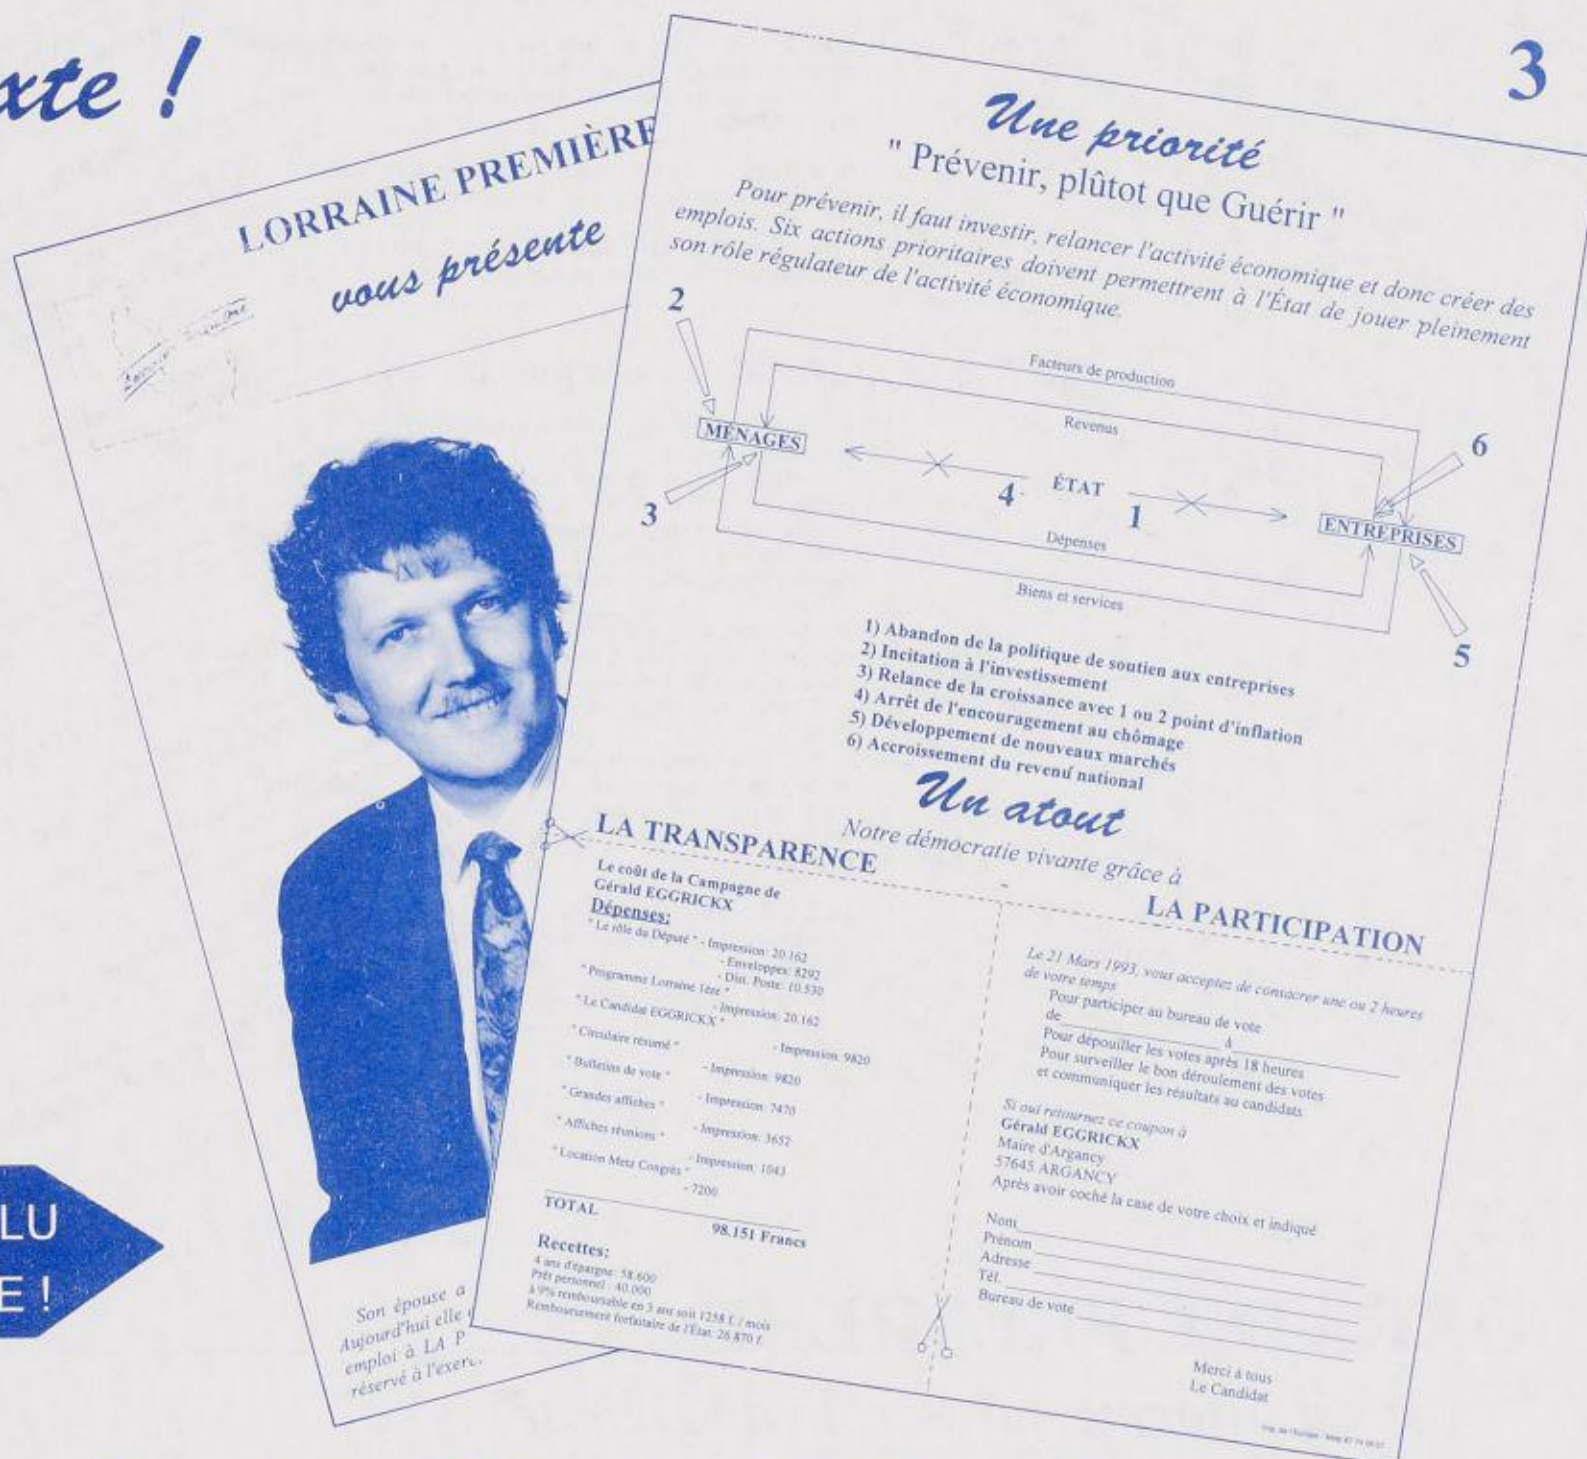 xte !
3
LORRAINE PREMIÈRE
vous présente
Son épouse a
Aujourd'hui elle
emploi à LA P
réservé à l'exer
LU
E !
Une priorité
" Prévenir, plûtot que Guérir "
Pour prévenir, il faut investir, relancer l'activité économique et donc créer des
emplois. Six actions prioritaires doivent permettrent à l'État de jouer pleinement
son rôle régulateur de l'activité économique.
2
Facteurs de production
Revenus
MÉNAGES
6
4
ÉTAT
1
3
ENTREPRISES
Dépenses
Biens et services
5
1) Abandon de la politique de soutien aux entreprises
2) Incitation à l'investissement
3) Relance de la croissance avec 1 ou 2 point d'inflation
4) Arrêt de l'encouragement au chômage
5) Développement de nouveaux marchés
6) Accroissement du revenu national
Un atout
Notre démocratie vivante grâce à
LA TRANSPARENCE
Le coût de la Campagne de
Gérald EGGRICKX
Dépenses:
" Le rôle du Député " - Impression: 20.162
- Enveloppes: 8292
- Dist. Poste: 10.530
" Programme Lorraine 1ère "
- Impression: 20.162
" Le Candidat EGGRICKX "
- Impression: 9820
" Circulaire résumé "
- Impression: 9820
" Bulletins de vote "
- Impression: 7470
" Grandes affiches "
- Impression: 3652
" Affiches réunions "
- Impression: 1043
" Location Metz Congrès "
- 7200
TOTAL
98.151 Francs
Recettes:
4 ans d'épargne: 58.600
Prêt personnel : 40.000
à 9% remboursable en 3 ans soit 1258 f. / mois
Remboursement forfaitaire de l'État: 26.870 f.
LA PARTICIPATION
Le 21 Mars 1993, vous acceptez de consacrer une ou 2 heures
de votre temps
Pour participer au bureau de vote
de à
Pour dépouiller les votes après 18 heures
Pour surveiller le bon déroulement des votes
et communiquer les résultats au candidats
Si oui retournez ce coupon à
Gérald EGGRICKX
Maire d'Argancy
57645 ARGANCY
Après avoir coché la case de votre choix et indiqué
Nom
Prénom
Adresse
Tél.
Bureau de vote
Merci à tous
Le Candidat